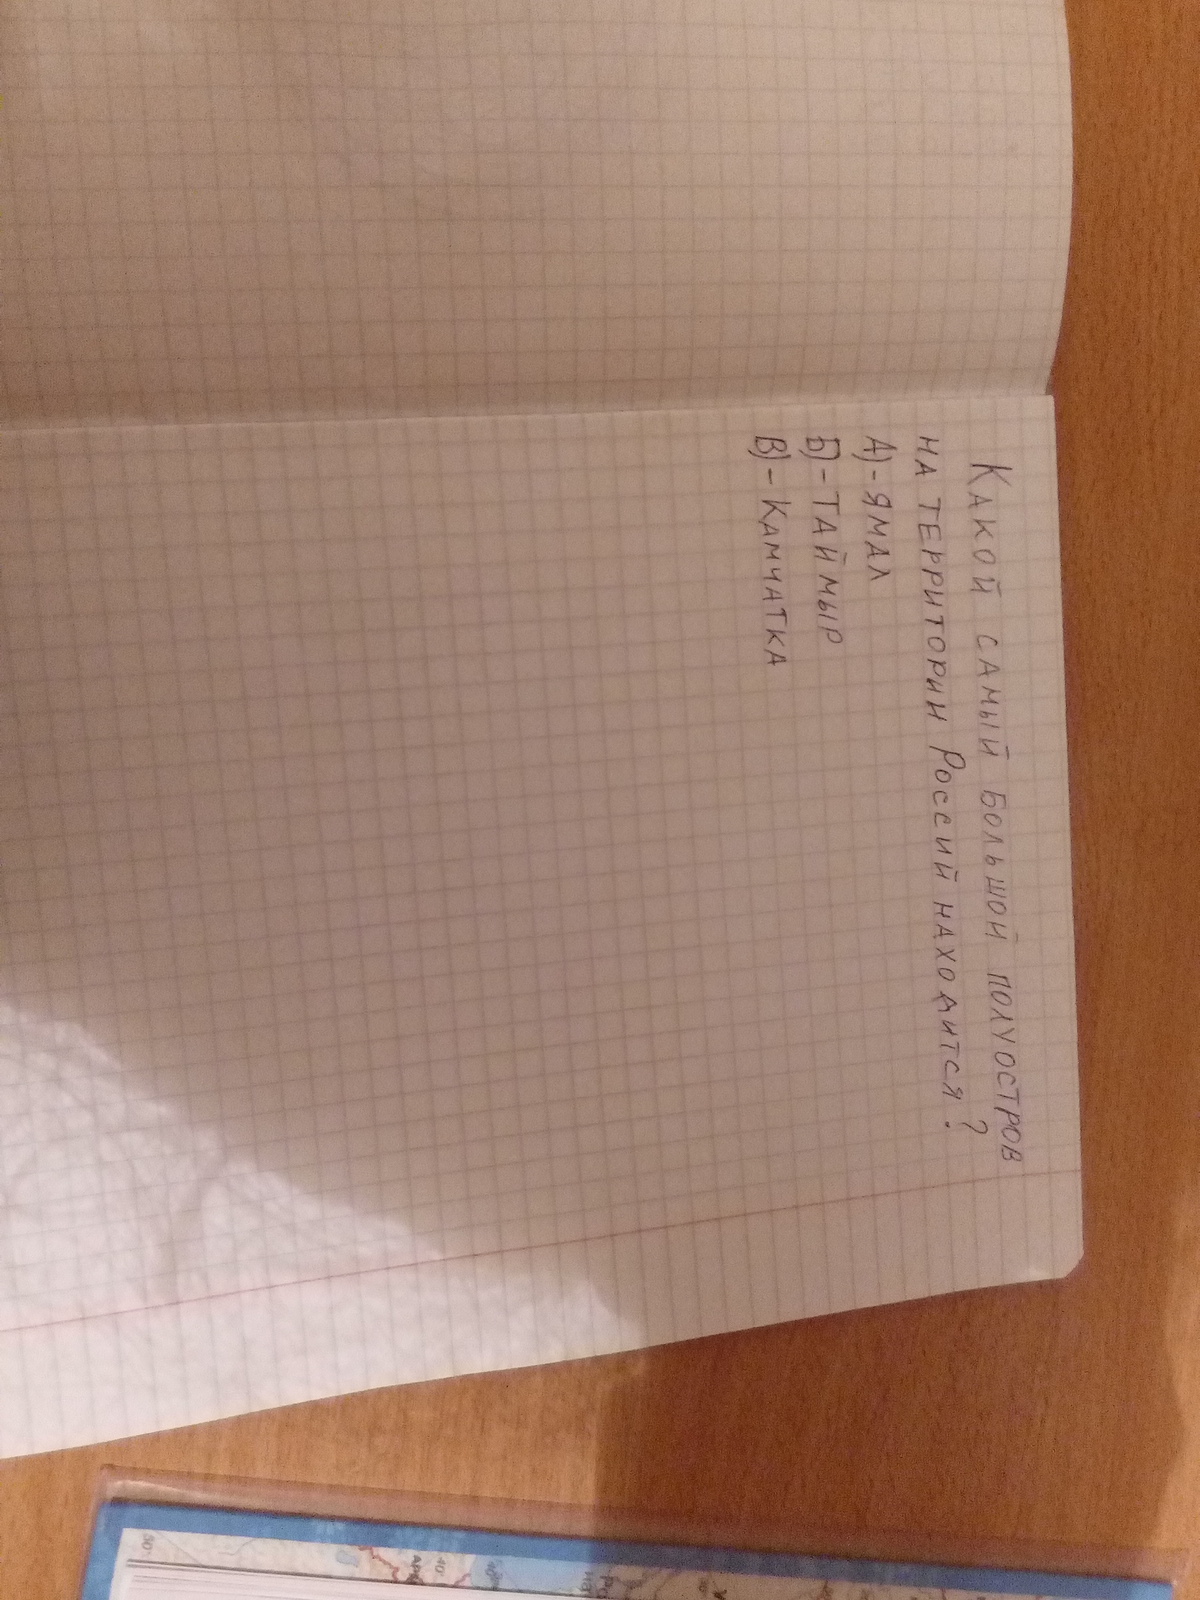 Какой самый большой полуостров
на территории Россий находится?
А)-Ямал
Б)-Таймыр
В)-Камчатка
50°
40°